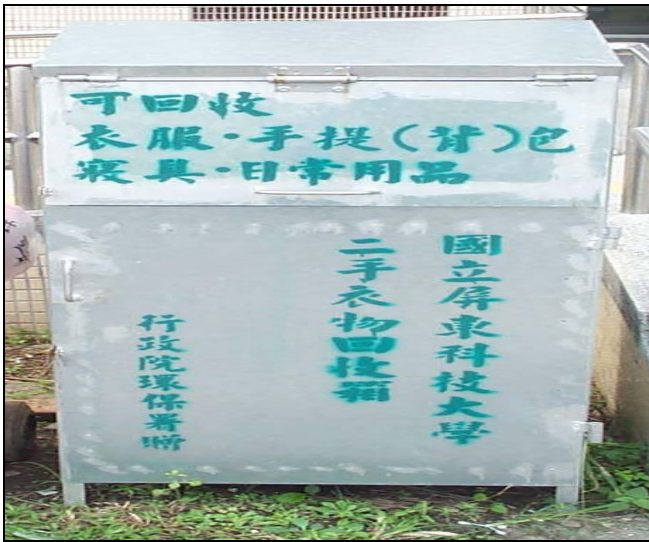 可回收
衣服·手提(背)包
寢具·日常用品
國立屏東科技大學
二手衣物回收箱
行政院環保署贈